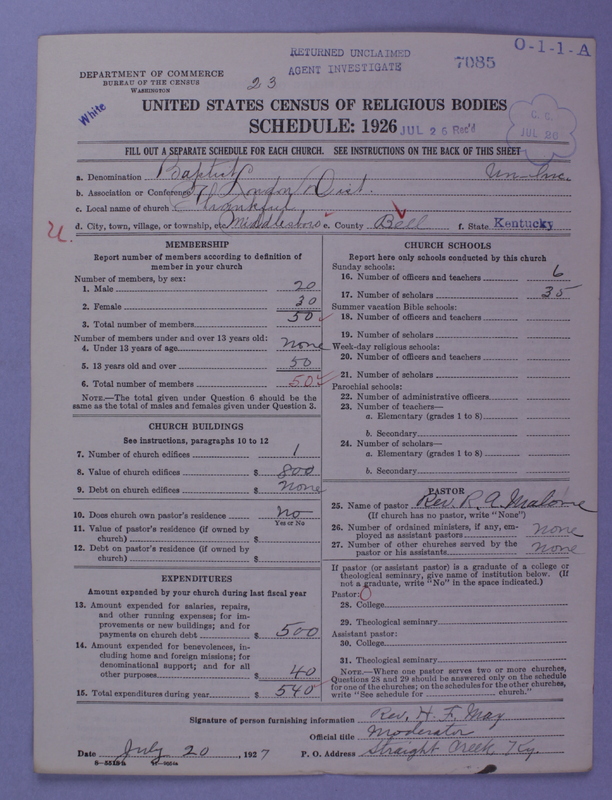 O-1-1-A
RETURNED UNCLAIMED
AGENT INVESTIGATE
7085
DEPARTMENT OF COMMERCE
BUREAU OF THE CENSUS
WASHINGTON
23
White
UNITED STATES CENSUS OF RELIGIOUS BODIES
SCHEDULE: 1926
JUL 26 Rec'd
JUL 26
FILL OUT A SEPARATE SCHEDULE FOR EACH CHURCH. SEE INSTRUCTIONS ON THE BACK OF THIS SHEET
a. Denomination Baptist
b. Association or Conference London Dist.
c. Local name of church Thankful
U.
d. City, town, village, or township, etc. Middlesboro e. County Bell f. State Kentucky
MEMBERSHIP
Report number of members according to definition of
member in your church
Number of members, by sex:
1. Male 20
2. Female 30
3. Total number of members 50
Number of members under and over 13 years old:
4. Under 13 years of age none
5. 13 years old and over 50
6. Total number of members 50
NOTE.—The total given under Question 6 should be the
same as the total of males and females given under Question 3.
CHURCH BUILDINGS
See instructions, paragraphs 10 to 12
7. Number of church edifices 1
8. Value of church edifices $ 800
9. Debt on church edifices $ none
10. Does church own pastor's residence? No
Yes or No
11. Value of pastor's residence (if owned by
church) $
12. Debt on pastor's residence (if owned by
church) $
EXPENDITURES
Amount expended by your church during last fiscal year
13. Amount expended for salaries, repairs,
and other running expenses; for im-
provements or new buildings; and for
payments on church debt $ 500
14. Amount expended for benevolences, in-
cluding home and foreign missions; for
denominational support; and for all
other purposes $ 40
15. Total expenditures during year $ 540
CHURCH SCHOOLS
Report here only schools conducted by this church
Sunday schools:
16. Number of officers and teachers 6
17. Number of scholars 35
Summer vacation Bible schools:
18. Number of officers and teachers
19. Number of scholars
Week-day religious schools:
20. Number of officers and teachers
21. Number of scholars
Parochial schools:
22. Number of administrative officers
23. Number of teachers—
a. Elementary (grades 1 to 8)
b. Secondary
24. Number of scholars—
a. Elementary (grades 1 to 8)
b. Secondary
PASTOR
25. Name of pastor Rev. R. A. Malone
(If church has no pastor, write "None")
26. Number of ordained ministers, if any, em-
ployed as assistant pastors none
27. Number of other churches served by the
pastor or his assistants none
If pastor (or assistant pastor) is a graduate of a college or
theological seminary, give name of institution below. (If
not a graduate, write "No" in the space indicated.)
Pastor: O
28. College
29. Theological seminary
Assistant pastor:
30. College
31. Theological seminary
NOTE.—Where one pastor serves two or more churches,
Questions 28 and 29 should be answered only on the schedule
for one of the churches; on the schedules for the other churches,
write "See schedule for church."
Signature of person furnishing information Rev. H. F. May
Official title Moderator
Date July 20, 1927 P. O. Address Straight Creek Ky.